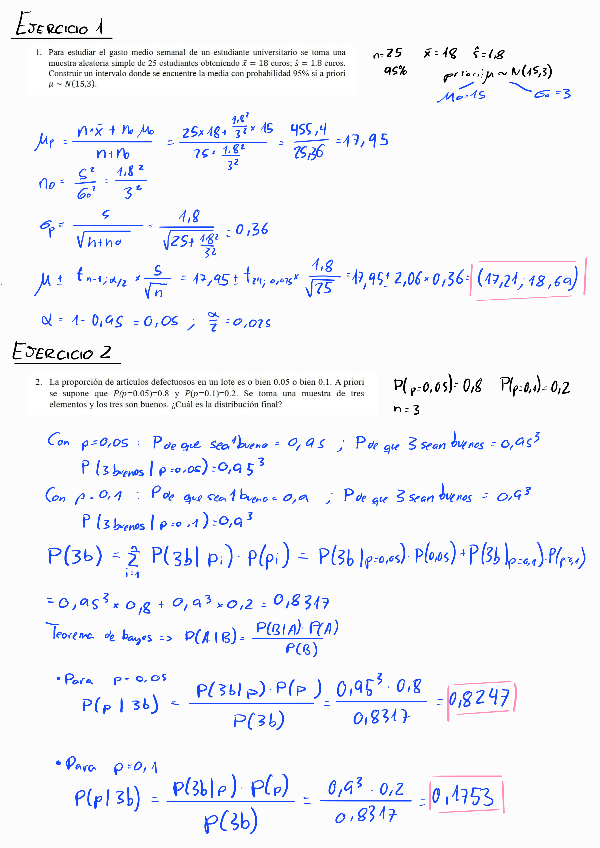 EJERCICIO 1
1. Para estudiar el gasto medio semanal de un estudiante universitario se toma una
muestra aleatoria simple de 25 estudiantes obteniendo x̄ = 18 euros; ŝ = 1.8 euros.
Construir un intervalo donde se encuentre la media con probabilidad 95% si a priori
μ ~ N(15,3).
n=25 x̄=18 ŝ=1,8
95% priori μ ~ N(15,3)
μ₀=15 σ₀=3
μp = (n·x̄ + n₀ μ₀)/(n+n₀) = (25×18 + 1,8²/3² × 15)/(25 + 1,8²/3²) = 455,4/25,36 = 17,95
n₀ = s²/σ₀² = 1,8²/3²
σp = s/√(n+n₀) = 1,8/√(25 + 1,8²/3²) = 0,36
μ ± t n-1; α/2 × s/√n = 17,95 ± t 24; 0,025 × 1,8/√25 = 17,95 ± 2,06 × 0,36 = (17,21; 18,69)
α = 1 - 0,95 = 0,05 ; α/2 = 0,025
EJERCICIO 2
2. La proporción de artículos defectuosos en un lote es o bien 0.05 o bien 0.1. A priori
se supone que P(p=0.05)=0.8 y P(p=0.1)=0.2. Se toma una muestra de tres
elementos y los tres son buenos. ¿Cuál es la distribución final?
P(p=0,05)=0,8 P(p=0,1)=0,2
n=3
Con p=0,05 : P de que sea 1 bueno = 0,95 ; P de que 3 sean buenos = 0,95³
P(3 buenos | p=0,05)=0,95³
Con p=0,1 : P de que sea 1 bueno = 0,9 ; P de que 3 sean buenos = 0,9³
P(3 buenos | p=0,1)=0,9³
P(3b) = Σ i=1 P(3b | pi) · P(pi) = P(3b | p=0,05) · P(0,05) + P(3b | p=0,1) · P(p=0,1)
= 0,95³ × 0,8 + 0,9³ × 0,2 = 0,8317
Teorema de bayes => P(A|B) = P(B|A) · P(A) / P(B)
• Para p=0,05
P(p | 3b) = P(3b|p) · P(p) / P(3b) = 0,95³ · 0,8 / 0,8317 = 0,8247
• Para p=0,1
P(p | 3b) = P(3b|p) · P(p) / P(3b) = 0,9³ · 0,2 / 0,8317 = 0,1753